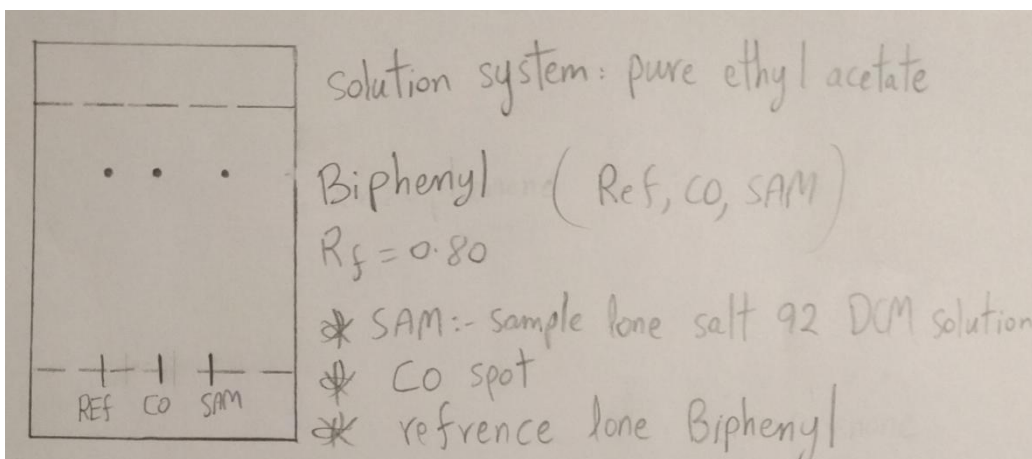 solution system: pure ethyl acetate
Biphenyl (Ref, CO, SAM)
Rf = 0.80
* SAM:- sample lone salt 92 DCM solution
* CO spot
* refrence lone Biphenyl
REf CO SAM